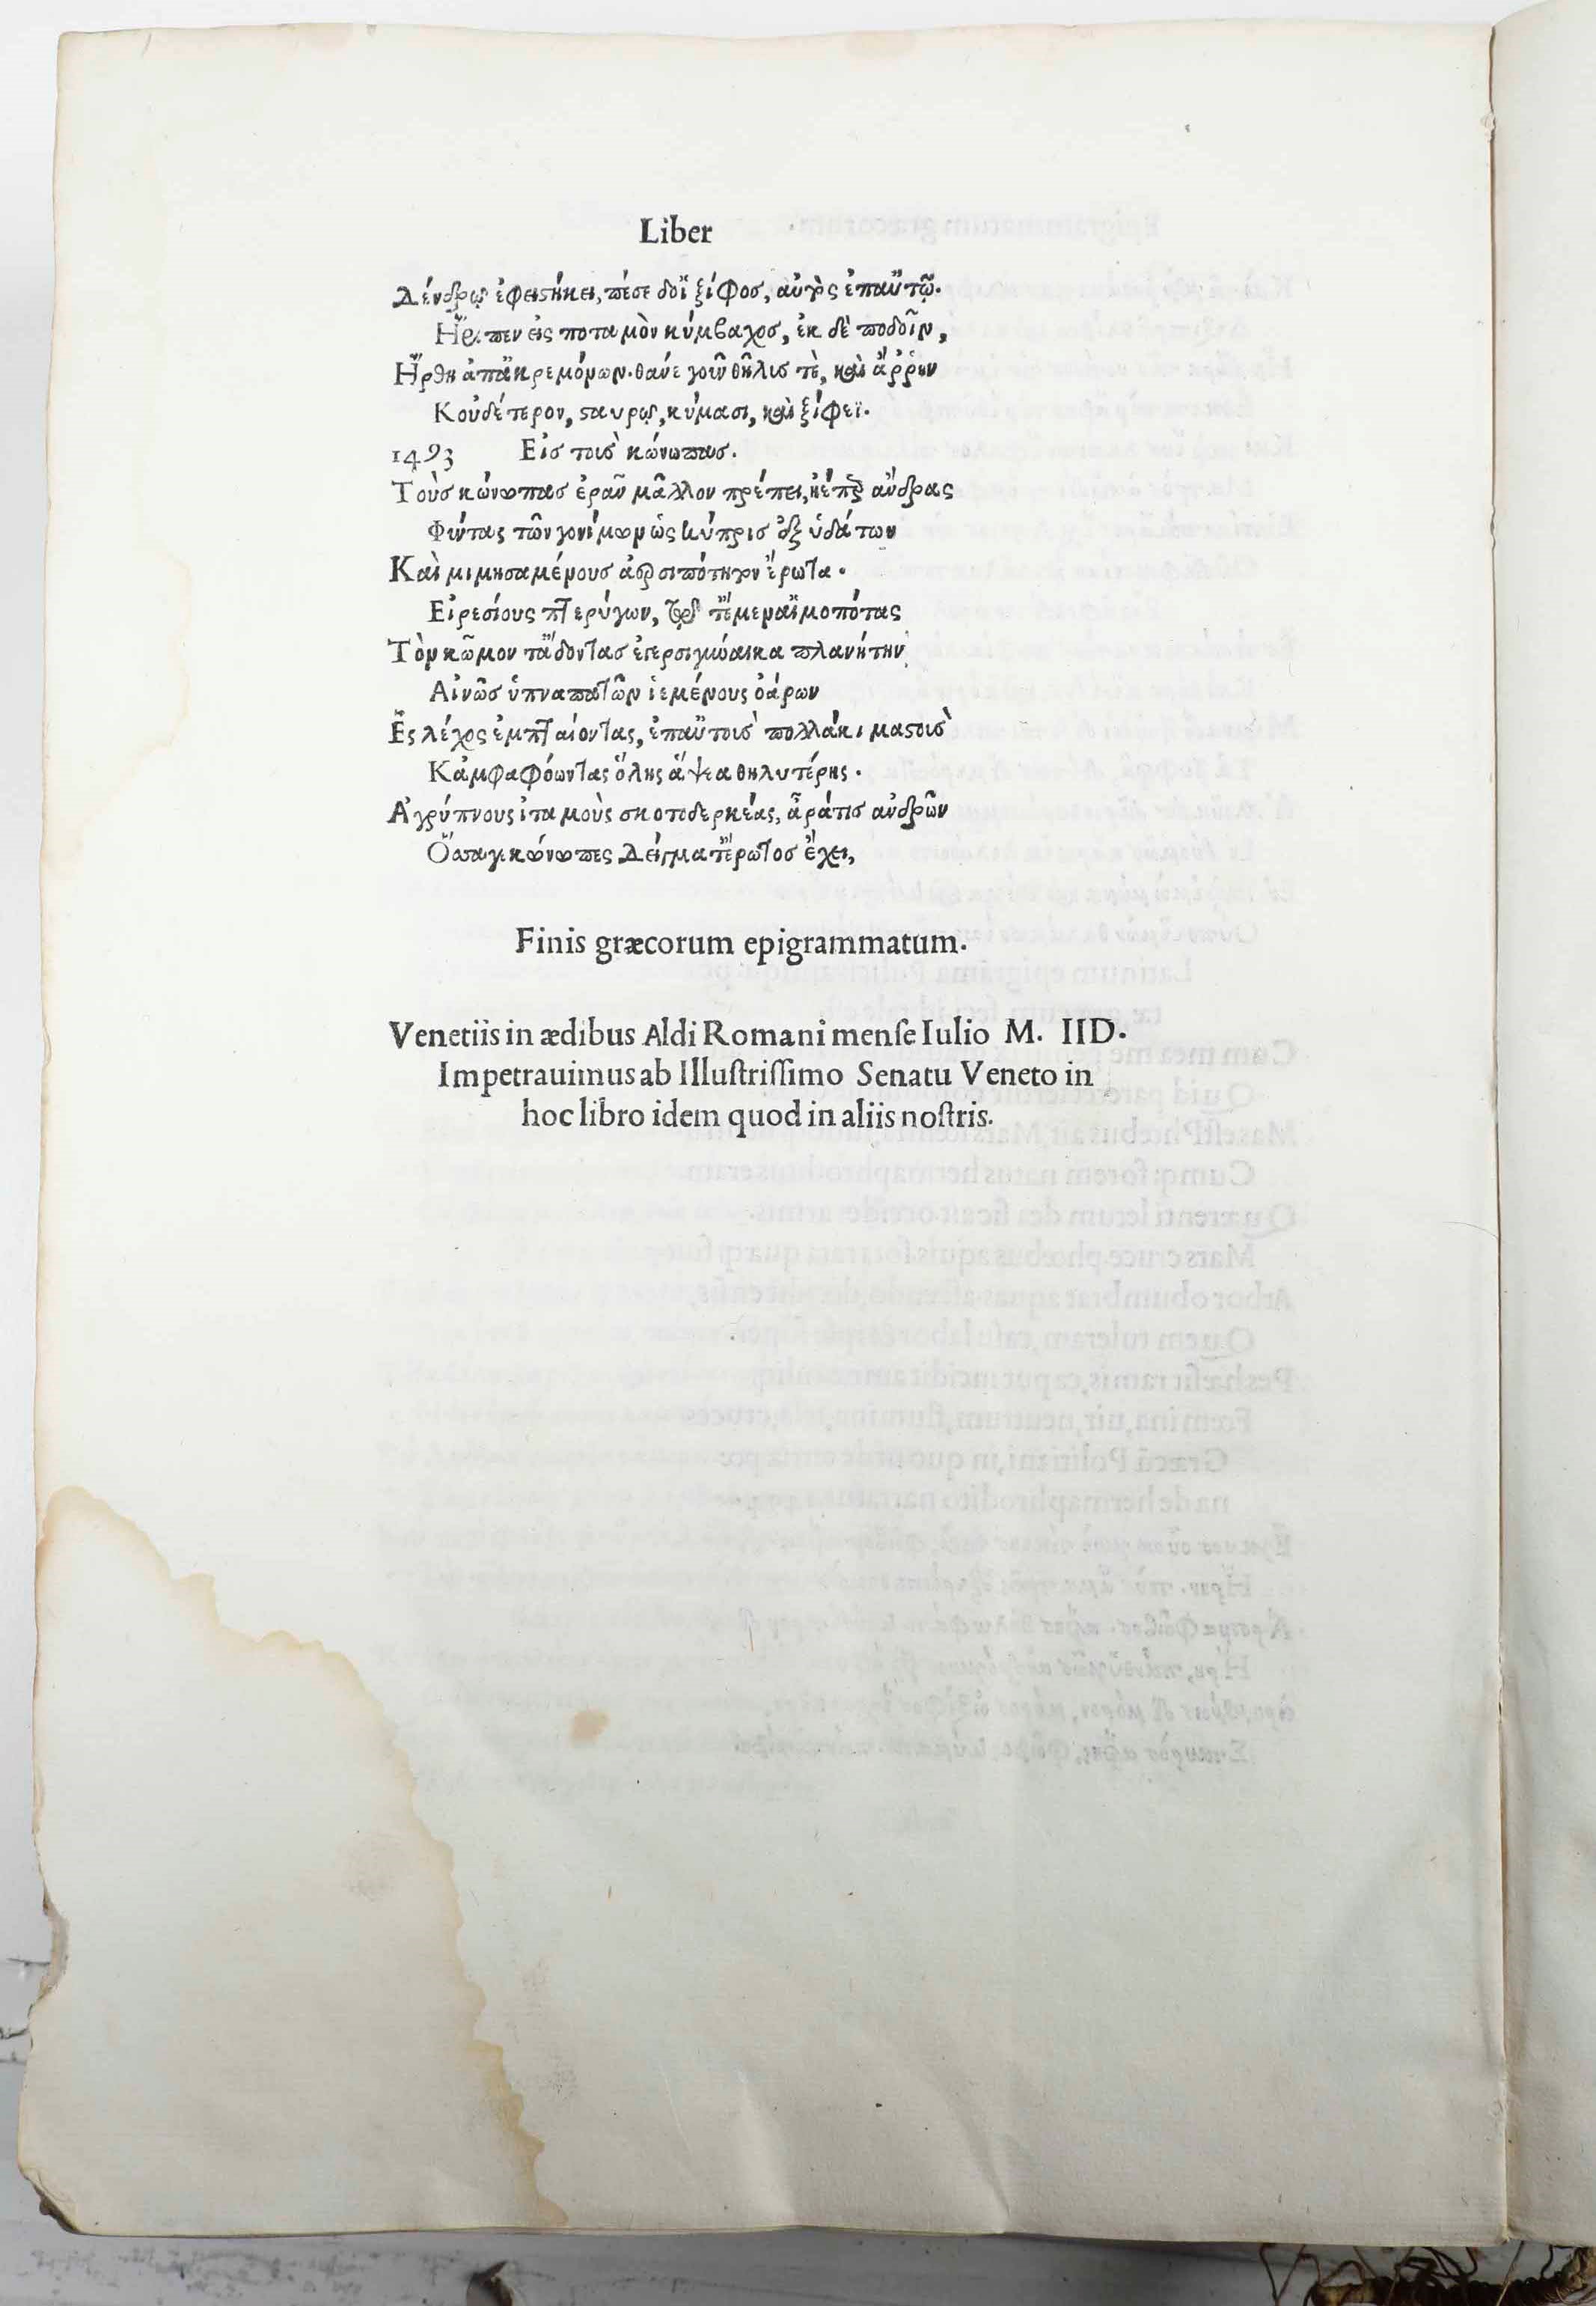 Liber
Δένδρῳ ἐφειστήκει, πέσε δοἲ ξίφοσ, αὐτὸς ἐπαὔτῷ.
Ἤριπεν εἰς ποταμὸν κύμβαχοσ, ἐκ δὲ ποδοῖν,
Ἤρθη ἀπἂκρεμόνων. θανέ γοῦν θῆλισ τὲ, καὶ ἄῤῥην
Κοὐδέτερον, σαυρῷ, κύμασι, καὶ ξίφεϊ.
1493 Εἰσ τοισ̀ κώνωπασ.
Τοὺσ κώνωπασ ἐρᾶν μᾶλλον πρέπει, ἠέπερ ἄνδρας
Φύντας τῶν γονίμων ὡς κύπρισ ἐξ ὑδάτων
Καὶ μιμησαμένουσ ἀερσιπότητον ἔρωτα.
Εἰρεσίους πτερύγων, τἵμεραἱμοπότας
Τὸν κῶμον τἄδοντασ ἐγερσιγύναικα πλανήτην
Αἰνῶσ ὑπναπατῶν ἱεμένους ὀάρων
Ἒς λέχος ἐμπταίοντας, ἐπαὔτοισ̀ πολλάκι μαστοισ̀
Κἀμφαφόωντας ὅλης ἅψεα θηλυτέρης.
Ἀγρύπνους ἰταμοὺς σκοτοδερκέας, ἆράτισ ἀνδρῶν
Ὅσαγε κώνωπες Δείγματἔρωτοσ ἔχει,
Finis græcorum epigrammatum.
Venetiis in ædibus Aldi Romani menſe Iulio M. IID.
Impetrauimus ab Illuſtriſſimo Senatu Veneto in
hoc libro idem quod in aliis noſtris.